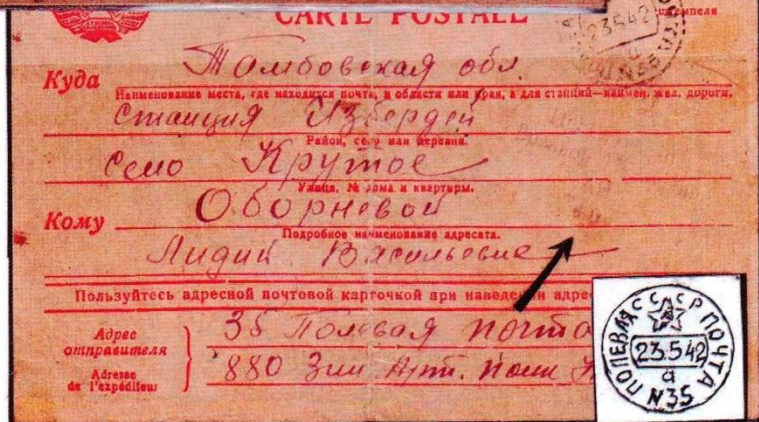 CARTE POSTALE
23.5.42
Куда
Тамбовская обл
Наименование места, где находится почта, и области или края, а для станций—наимен. жел. дороги.
Станция Избердей
Район, село или деревня.
Село Крутое
Улица, № дома и квартиры.
Кому
Оборневой
Подробное наименование адресата.
Лидии Васильевне
Пользуйтесь адресной почтовой карточкой при наведении
Адрес отправителя
Adresse de l'expéditeur
35 Полевая почта
880 Арт. Полк
ПОЛЕВАЯ СССР ПОЧТА
23.5.42
а
N35